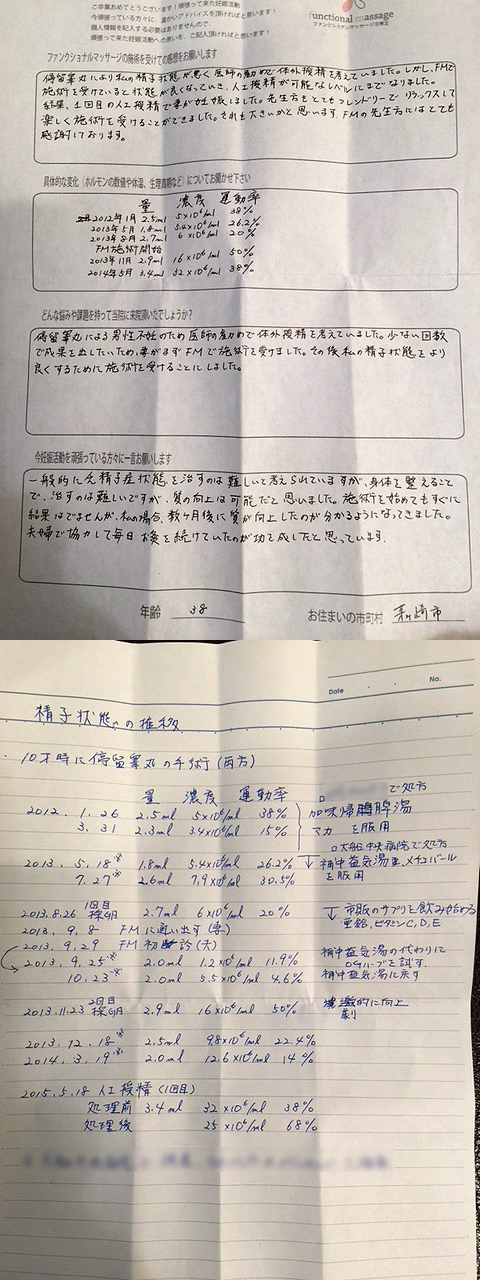 ご卒業おめでとうございます!頑張って来た妊娠活動
今頑張っている方々に、温かいアドバイスを頂ければと思います!
個人情報を記入する必要はありませんので、
頑張って来た妊娠活動への思いを、ご記入頂ければと思います!
functional massage
ファンクショナルマッサージ治療室
ファンクショナルマッサージの施術を受けての感想をお願いします
停留睾丸により私の精子状態が悪く医師の勧めで体外授精を考えていました。しかし、FMで
施術を受けていると状態が良くなっていき、人工授精が可能なレベルにまでなりました。
結果、1回目の人工授精で妻が妊娠しました。先生方もとてもフレンドリーでリラックスして
楽しく施術を受けることができました。それも大きいかと思います。FMの先生方にはとても
感謝しております。
具体的な変化(ホルモンの数値や体温、生理周期など)についてお聞かせ下さい
量 濃度 運動率
2012年1月 2.5ml 5×10⁶/ml 38%
2013年5月 1.8ml 5.4×10⁶/ml 26.2%
2013年8月 2.7ml 6×10⁶/ml 20%
FM施術開始
2013年11月 2.9ml 16×10⁶/ml 50%
2014年5月 3.4ml 32×10⁶/ml 38%
どんな悩みや課題を持って当院に来院頂いたでしょうか?
停留睾丸による男性不妊のため医師の勧めで体外授精を考えていました。少ない回数
で成果を出したいため、妻がまずFMで施術を受けました。その後私の精子状態をより
良くするために施術を受けることにしました。
今妊娠活動を頑張っている方々に一言お願いします
一般的に乏精子症状態を治すのは難しいと考えられていますが、身体を整えること
で、治すのは難しいですが、質の向上は可能だと思いました。施術を始めてもすぐに
結果はでませんが、私の場合、数ヶ月後に質が向上したのが分かるようになってきました。
夫婦で協力して毎日お灸を続けていたのが功を成したと思っています。
年齢 38 お住まいの市町村 茅ヶ崎市
Date ・ ・ No.
精子状態の推移
・10才時に停留睾丸の手術(両方)
量 濃度 運動率
で処方
2012. 1. 26 2.5ml 5×10⁶/ml 38% 加味帰脾湯
3. 31 2.3ml 3.4×10⁶/ml 15% マカ を服用
大船中央病院で処方
2013. 5. 18※ 1.8ml 5.4×10⁶/ml 26.2% ↓ 補中益気湯、メチコバール
7. 27※ 2.6ml 7.9×10⁶/ml 30.5% を服用
2013.8.26 1回目採卵 2.7ml 6×10⁶/ml 20% ↓ 市販のサプリを飲み始める
亜鉛、ビタミンC,D,E
2013. 9. 8 FMに通い出す(妻)
2013. 9. 29 FM初診(夫)
2013. 9. 25※ 2.0ml 1.2×10⁶/ml 11.9% 補中益気湯の代わりに
を試す
10. 23※ 2.0ml 5.5×10⁶/ml 4.6% 補中益気湯に戻す
2013.11.23 2回目採卵 2.9ml 16×10⁶/ml 50% 劇的に向上
2013. 12. 18※ 2.5ml 9.8×10⁶/ml 22.4%
2014. 3. 19※ 2.0ml 12.6×10⁶/ml 14%
2015. 5. 18 人工授精(1回目)
処理前 3.4ml 32×10⁶/ml 38%
処理後 25×10⁶/ml 68%